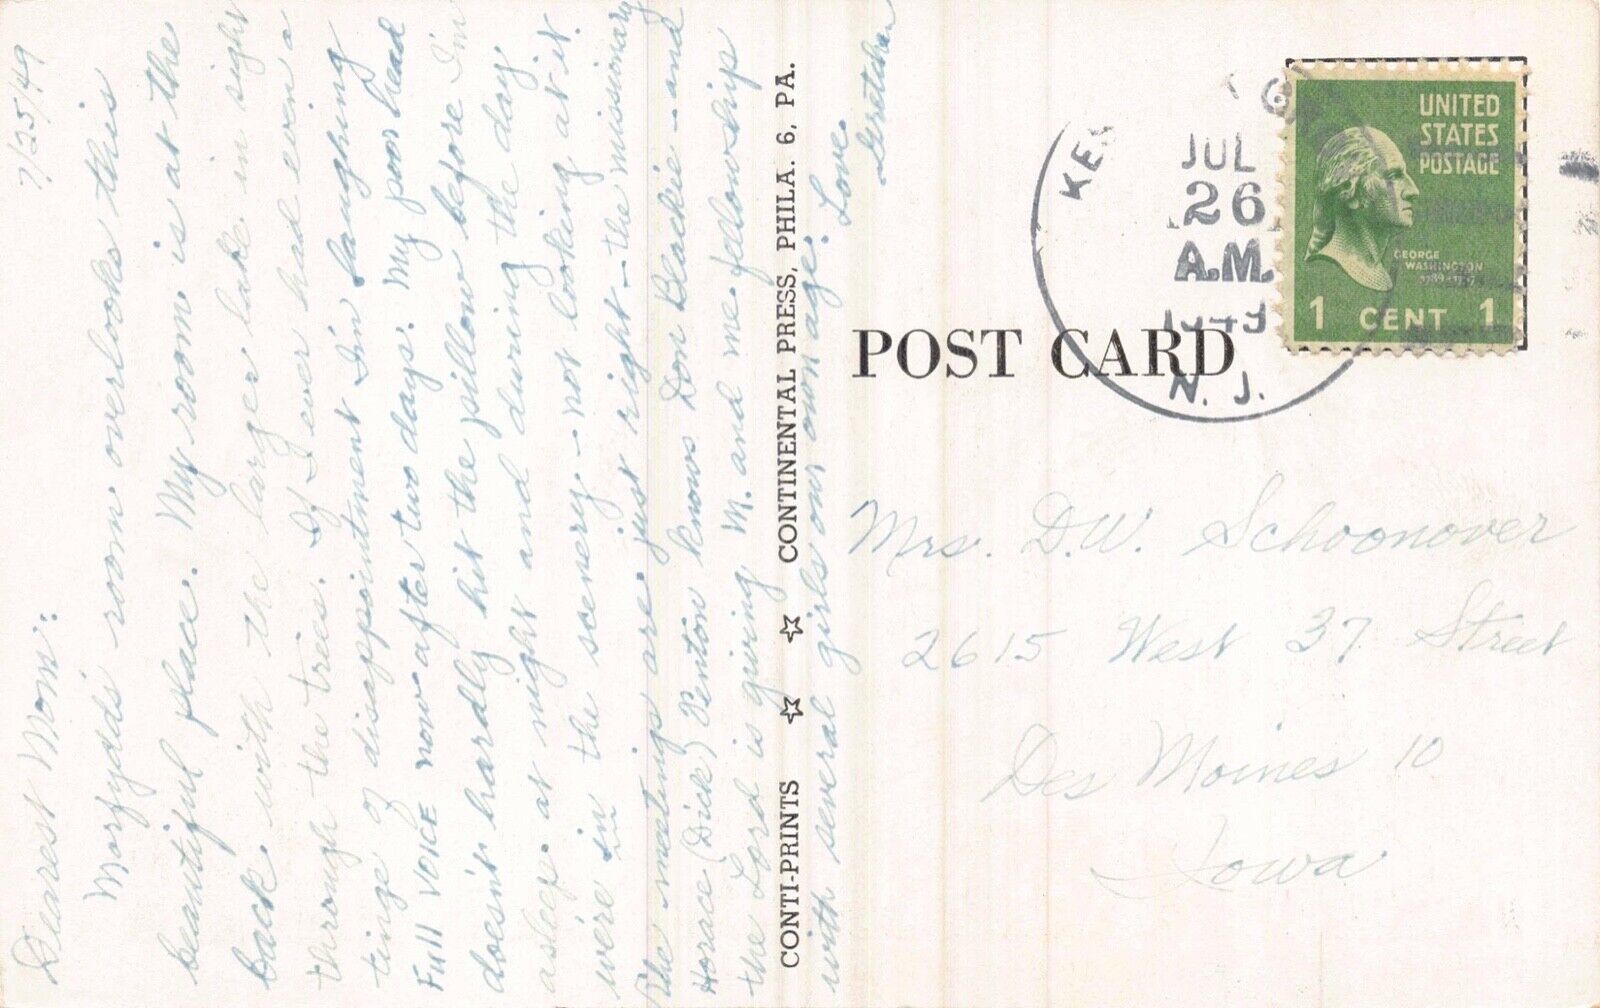 7/25/49
Dearest Mom:
room overlooks this
beautiful place. My room is at the
back with the larger lake in sight
through the trees. If I ever had even a
tinge of disappointment I'm laughing
Full VOICE now after two days. My poor head
doesn't hardly hit the pillow before I'm
asleep at night and during the day
we're in the scenery – not looking at it.
The meetings are just right – the missionary
Horace (Dick) Penton knows Don Blackie – and
the Lord is giving M. and me fellowship
with several girls our own age. Love
Gretchen
CONTI-PRINTS ☆ ☆ CONTINENTAL PRESS, PHILA. 6, PA.
POST CARD
KE
JUL
26
A.M.
1949
N. J.
UNITED
STATES
POSTAGE
GEORGE
WASHINGTON
1 CENT 1
Mrs. D.W. Schoonover
2615 West 37 Street
Des Moines 10
Iowa